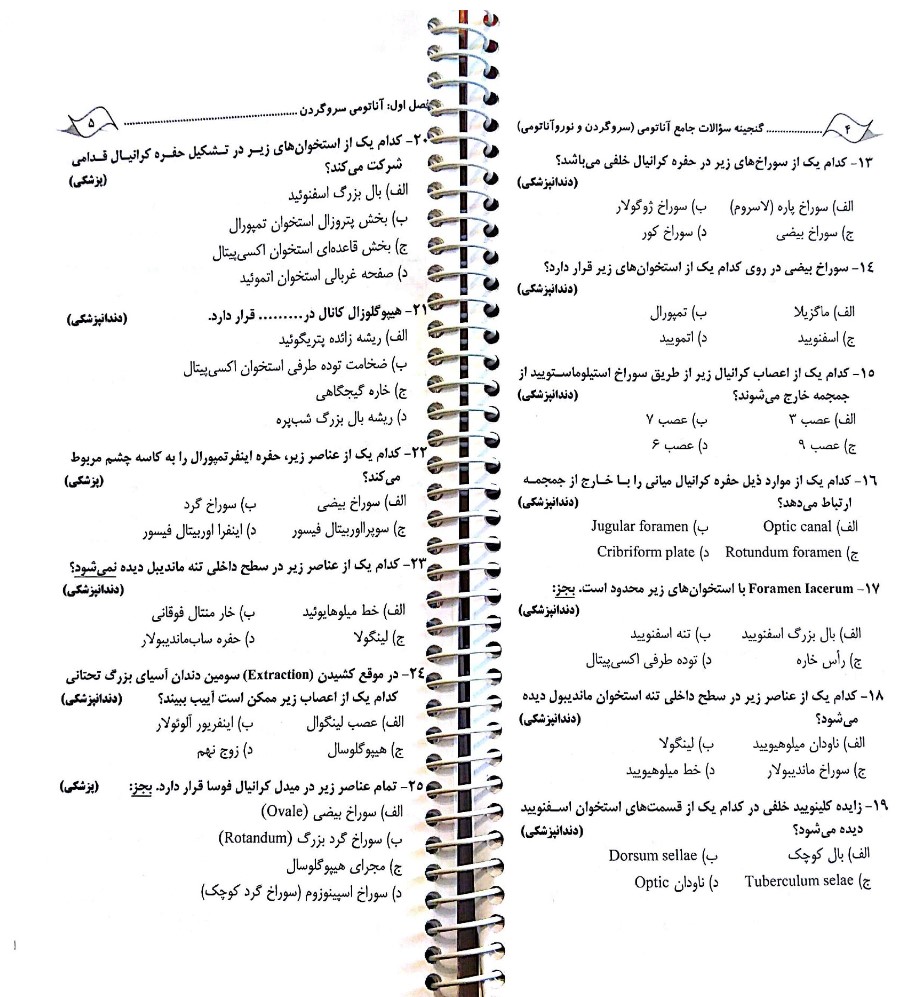 ۴
گنجینه سؤالات جامع آناتومی (سروگردن و نوروآناتومی) ....................
۱۳- کدام یک از سوراخ‌های زیر در حفره کرانیال خلفی می‌باشد؟
(دندانپزشکی)
الف) سوراخ پاره (لاسروم) ب) سوراخ ژوگولار
ج) سوراخ بیضی د) سوراخ کور
۱۴- سوراخ بیضی در روی کدام یک از استخوان‌های زیر قرار دارد؟
(دندانپزشکی)
الف) ماگزیلا ب) تمپورال
ج) اسفنویید د) اتمویید
۱۵- کدام یک از اعصاب کرانیال زیر از طریق سوراخ استیلوماستویید از
جمجمه خارج می‌شوند؟ (دندانپزشکی)
الف) عصب ۳ ب) عصب ۷
ج) عصب ۹ د) عصب ۶
۱۶- کدام یک از موارد ذیل حفره کرانیال میانی را بـا خـارج از جمجمـه
ارتباط می‌دهد؟ (دندانپزشکی)
الف) Optic canal ب) Jugular foramen
ج) Rotundum foramen د) Cribriform plate
۱۷- Foramen Iacerum با استخوان‌های زیر محدود است. بجز:
(دندانپزشکی)
الف) بال بزرگ اسفنویید ب) تنه اسفنویید
ج) رأس خاره د) توده طرفی اکسی‌پیتال
۱۸- کدام یک از عناصر زیر در سطح داخلی تنه استخوان ماندیبول دیده
می‌شود؟ (دندانپزشکی)
الف) ناودان میلوهیویید ب) لینگولا
ج) سوراخ ماندیبولار د) خط میلوهیویید
۱۹- زایده کلینویید خلفی در کدام یک از قسمت‌های استخوان اسـفنویید
دیده می‌شود؟ (دندانپزشکی)
الف) بال کوچک ب) Dorsum sellae
ج) Tuberculum selae د) ناودان Optic
فصل اول: آناتومی سروگردن ....................
۵
۲۰- کدام یک از استخوان‌های زیـر در تـشکیل حفـره کرانیـال قـدامی
شرکت می‌کند؟ (پزشکی)
الف) بال بزرگ اسفنوئید
ب) بخش پتروزال استخوان تمپورال
ج) بخش قاعده‌ای استخوان اکسی‌پیتال
د) صفحه غربالی استخوان اتموئید
۲۱- هیپوگلوزال کانال در......... قرار دارد. (دندانپزشکی)
الف) ریشه زائده پتریگوئید
ب) ضخامت توده طرفی استخوان اکسی‌پیتال
ج) خاره گیجگاهی
د) ریشه بال بزرگ شب‌پره
۲۲- کدام یک از عناصر زیر، حفره اینفرتمپورال را به کاسه چشم مربوط
می‌کند؟ (پزشکی)
الف) سوراخ بیضی ب) سوراخ گرد
ج) سوپرااوربیتال فیسور د) اینفرا اوربیتال فیسور
۲۳- کدام یک از عناصر زیر در سطح داخلی تنه ماندیبل دیده نمی‌شود؟
(دندانپزشکی)
الف) خط میلوهایوئید ب) خار منتال فوقانی
ج) لینگولا د) حفره ساب‌ماندیبولار
۲۴- در موقع کشیدن (Extraction) سومین دندان آسیای بزرگ تحتانی
کدام یک از اعصاب زیر ممکن است آیب ببیند؟ (دندانپزشکی)
الف) عصب لینگوال ب) اینفریور آلوئولار
ج) هیپوگلوسال د) زوج نهم
۲۵- تمام عناصر زیر در میدل کرانیال فوسا قرار دارد. بجز: (پزشکی)
الف) سوراخ بیضی (Ovale)
ب) سوراخ گرد بزرگ (Rotandum)
ج) مجرای هیپوگلوسال
د) سوراخ اسپینوزوم (سوراخ گرد کوچک)